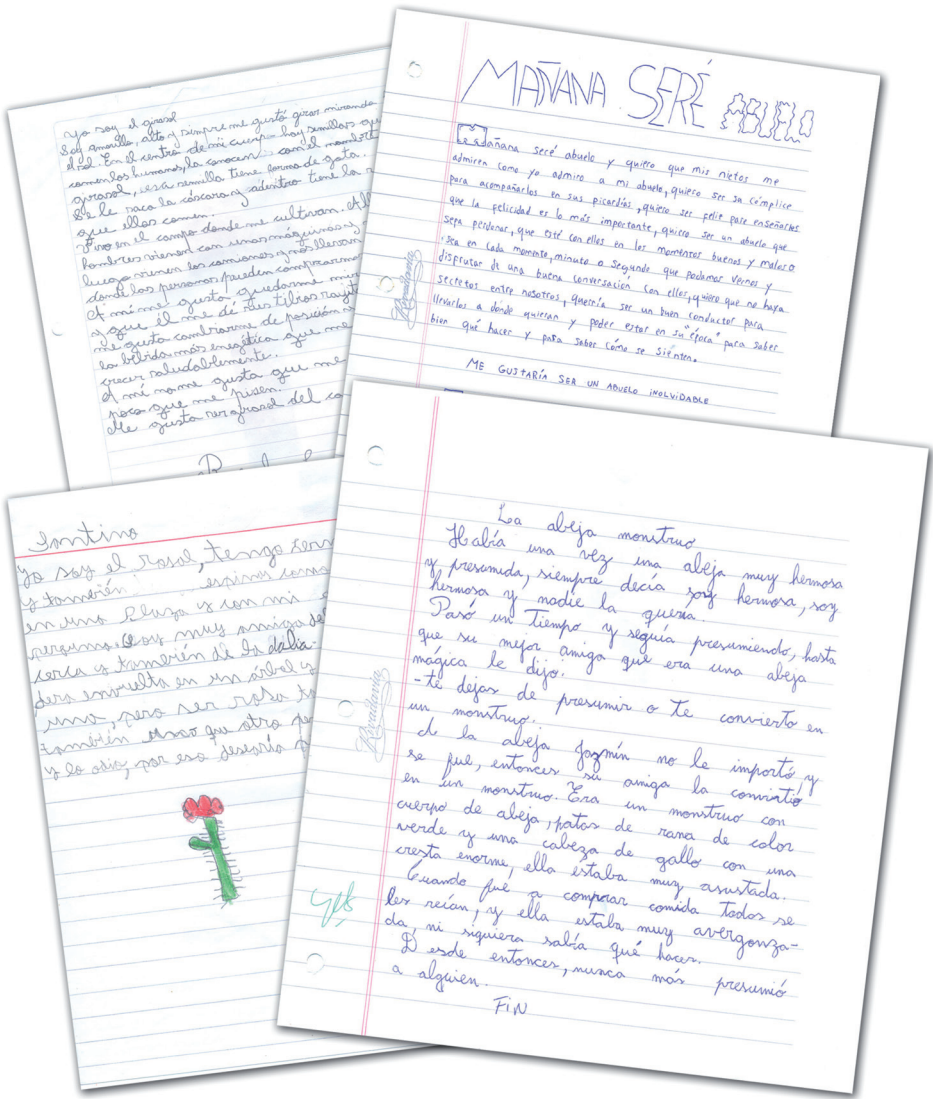 yo soy el girasol
Soy amarillo, alto y siempre me gustó girar mirando
el sol. En el centro de mi cuerpo hay semillas que
comen los humanos, la conocen con el nombre
girasol, esa semilla tiene forma de gota.
Se le saca la cáscara y adentro tiene la
que ellos comen.
Vivo en el campo donde me cultivan. Allí
hombres vienen con unas máquinas y
luego vienen los camiones y nos llevan
donde las personas pueden comprarme
A mí me gusta quedarme
y que él me dé sus tibios
me gusta cambiarme de posición
la bebida más energética que me
crecer saludablemente.
A mí no me gusta que me
poco que me pisen.
Me gusta ser girasol del
MAÑANA SERÉ ABUELO
Mañana seré abuelo y quiero que mis nietos me
admiren como yo admiro a mi abuelo, quiero ser su cómplice
para acompañarlos en sus picardías, quiero ser feliz para enseñarles
que la felicidad es lo más importante, quiero ser un abuelo que
sepa perdonar, que esté con ellos en los momentos buenos y malos o
sea en cada momento, minuto o segundo que podamos vernos y
disfrutar de una buena conversación con ellos, quiero que no haya
secretos entre nosotros, querría ser un buen conductor para
llevarlos a donde quieran y poder estar en su "época" para saber
bien qué hacer y para saber cómo se sienten.
ME GUSTARÍA SER UN ABUELO INOLVIDABLE
Rivadavia
Santino
Yo soy el rosal, tengo
y también espinas como
en una
perfume. Soy muy amiga del
cerca y también de la dalia
pero envuelta en un árbol y
una, pero ser rosa
también
y lo odio, por eso desearía
La abeja monstruo
Había una vez una abeja muy hermosa
y presumida, siempre decía soy hermosa, soy
hermosa y nadie la quería.
Pasó un tiempo y seguía presumiendo, hasta
que su mejor amiga que era una abeja
mágica le dijo.
-te dejas de presumir o te convierto en
un monstruo.
A la abeja Jazmín no le importó, y
se fue, entonces su amiga la convirtió
en un monstruo. Era un monstruo con
cuerpo de abeja, patas de rana de color
verde y una cabeza de gallo con una
cresta enorme, ella estaba muy asustada.
Cuando fue a comprar comida todos se
les reían, y ella estaba muy avergonza-
da, ni siquiera sabía qué hacer.
Desde entonces, nunca más presumió
a alguien.
FiN
Rivadavia